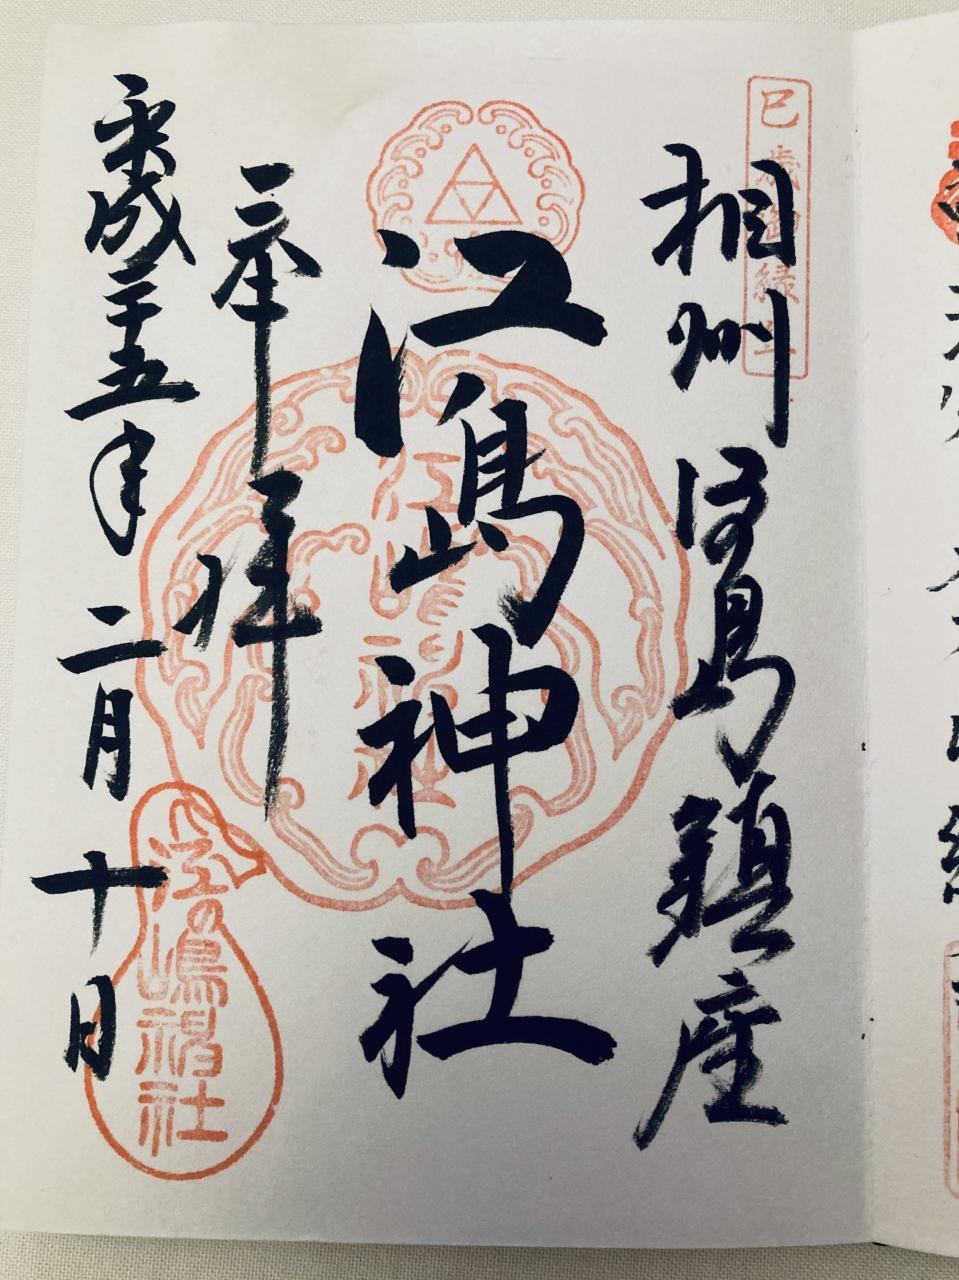 巳歳御縁年
相州江島鎮座
江嶋神社
奉拝
平成二十五年二月十日
江嶋神社
江の嶋神社